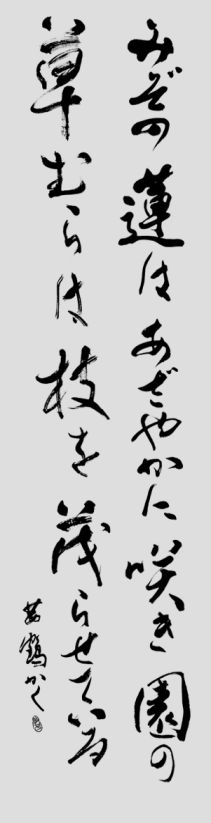 みぞの蓮はあざやかに咲き園の
草むらは枝を茂らせている
鶴かく